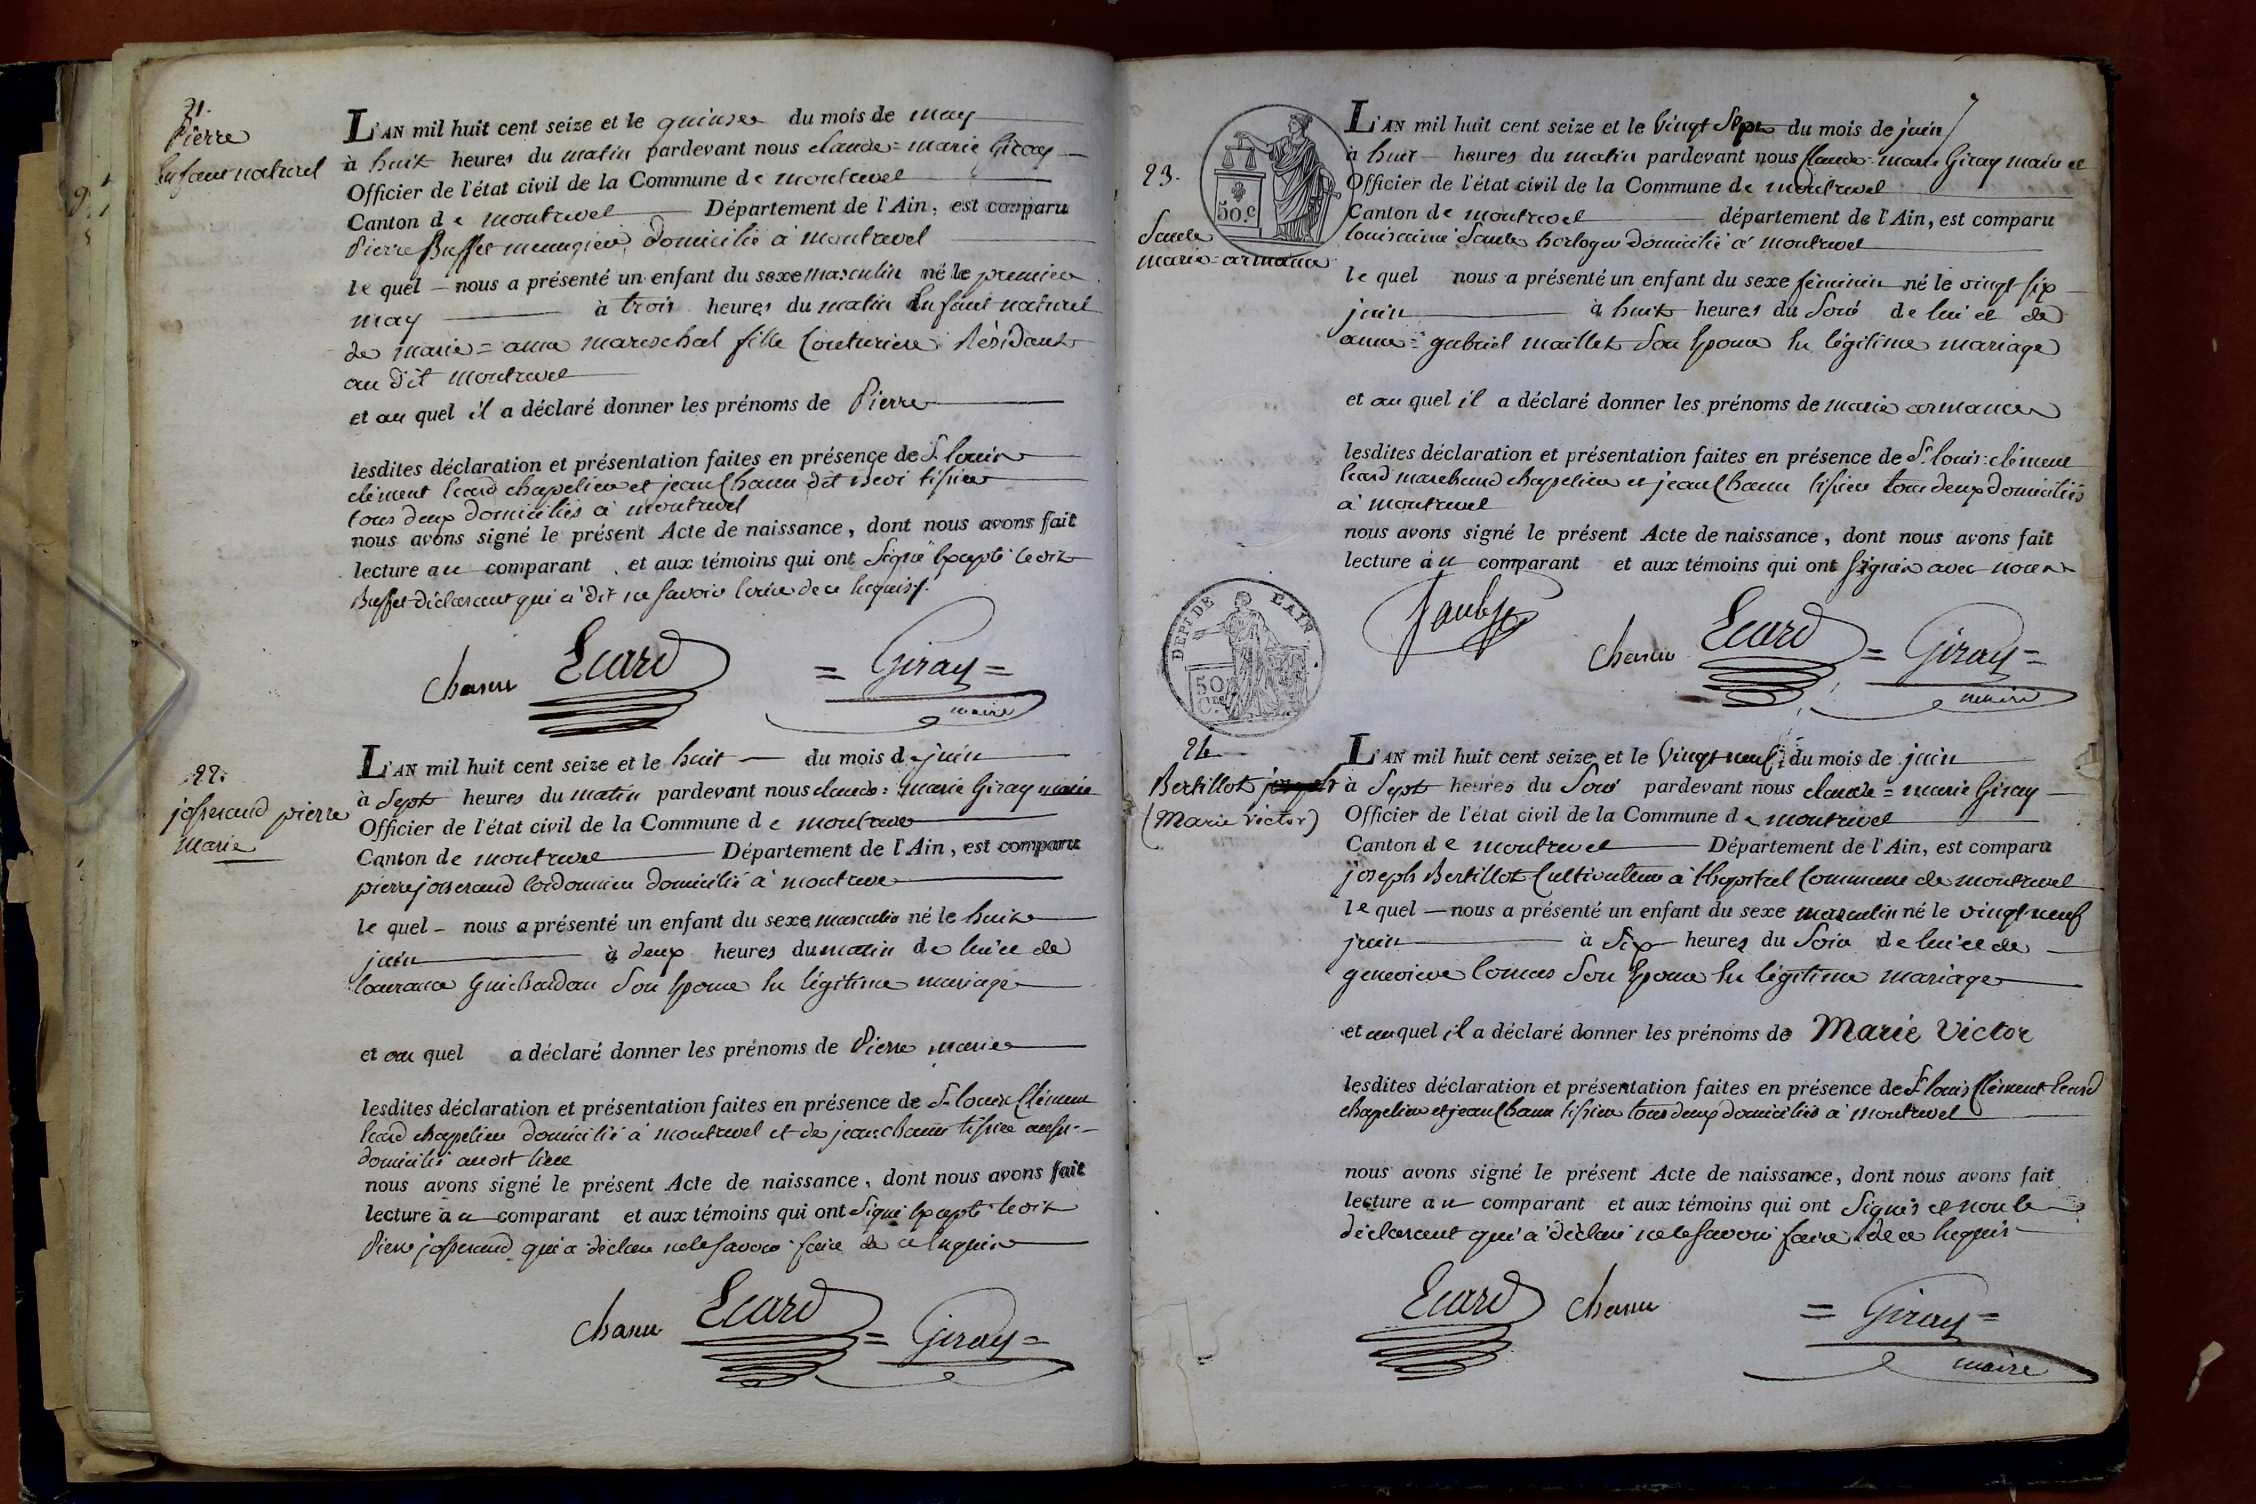 21.
Pierre
Enfant naturel
L'AN mil huit cent seize et le quinze du mois de may
à huit heures du matin pardevant nous claude = marie Giray
Officier de l'état civil de la Commune de montrevel
Canton de montrevel Département de l'Ain, est comparu
Pierre Buffet menuzier domicilié à montrevel
le quel nous a présenté un enfant du sexe masculin né le premier
may à trois heures du matin Enfant naturel
de marie = anne mareschal fille Couturiere Résidante
au dit montrevel
et au quel il a déclaré donner les prénoms de Pierre
lesdites déclaration et présentation faites en présence de Sr louis
clément Ecard chapelier et jean Chanu dit tissier
tous deux domiciliés à montrevel
nous avons signé le présent Acte de naissance, dont nous avons fait
lecture au comparant et aux témoins qui ont signé Excepté ledit
Buffet déclarant qui a dit ne savoir Ecrire de ce Requis.
chanu Ecard = Giray =
maire
22.
josserand pierre
marie
L'AN mil huit cent seize et le huit du mois de juin
à Sept heures du matin pardevant nous claude = marie Giray maire
Officier de l'état civil de la Commune de montrevel
Canton de montrevel Département de l'Ain, est comparu
pierre josserand Cordonnier domicilié à montrevel
le quel nous a présenté un enfant du sexe masculin né le huit
juin à deux heures du matin de lui et de
laurance Guichardan Son Epouse En légitime mariage
et au quel a déclaré donner les prénoms de Pierre marie
lesdites déclaration et présentation faites en présence de Sr louis Clément
Ecard chapelier domicilié à montrevel et de jean chanu tissier aussi
domicilié audit lieu
nous avons signé le présent Acte de naissance, dont nous avons fait
lecture au comparant et aux témoins qui ont Signé Excepté ledit
Pierre josserand qui a déclaré ne le savoir faire de ce Enquis
chanu Ecard = Giray =
23.
50.c
marie = armance
L'AN mil huit cent seize et le Vingt Sept du mois de juin
à huit heures du matin pardevant nous Claude = marie Giray maire et
Officier de l'état civil de la Commune de montrevel
Canton de montrevel département de l'Ain, est comparu
louis aimé horloger domicilié à montrevel
le quel nous a présenté un enfant du sexe féminin né le vingt six
juin à huit heures du Soir de lui et de
anne = gabriel maillet Son Epouse En légitime mariage
et au quel il a déclaré donner les prénoms de marie armance
lesdites déclaration et présentation faites en présence de Sr louis = clément
Ecard marchand chapelier et jean Chanu tissier tous deux domiciliés
à montrevel
nous avons signé le présent Acte de naissance, dont nous avons fait
lecture au comparant et aux témoins qui ont signés avec nous
chanu Ecard = Giray =
maire
DEPT DE L'AIN
50
24
Bertillot joseph
(Marie Victor)
L'AN mil huit cent seize et le Vingt neuf du mois de juin
à Sept heures du Soir pardevant nous claude = marie Giray
Officier de l'état civil de la Commune de montrevel
Canton de montrevel Département de l'Ain, est comparu
joseph Bertillot Cultivateur à l'hopital Commune de montrevel
le quel nous a présenté un enfant du sexe masculin né le vingt neuf
juin à Six heures du Soir de lui et de
genevieve Comas Son Epouse En légitime mariage
et au quel il a déclaré donner les prénoms de Marie Victor
lesdites déclaration et présentation faites en présence de Sr louis Clément Ecard
chapelier et jean Chanu tissier tous deux domiciliés à montrevel
nous avons signé le présent Acte de naissance, dont nous avons fait
lecture au comparant et aux témoins qui ont Signés et non le
déclarant qui a déclaré ne le savoir faire de ce Requis
Ecard chanu = Giray =
maire